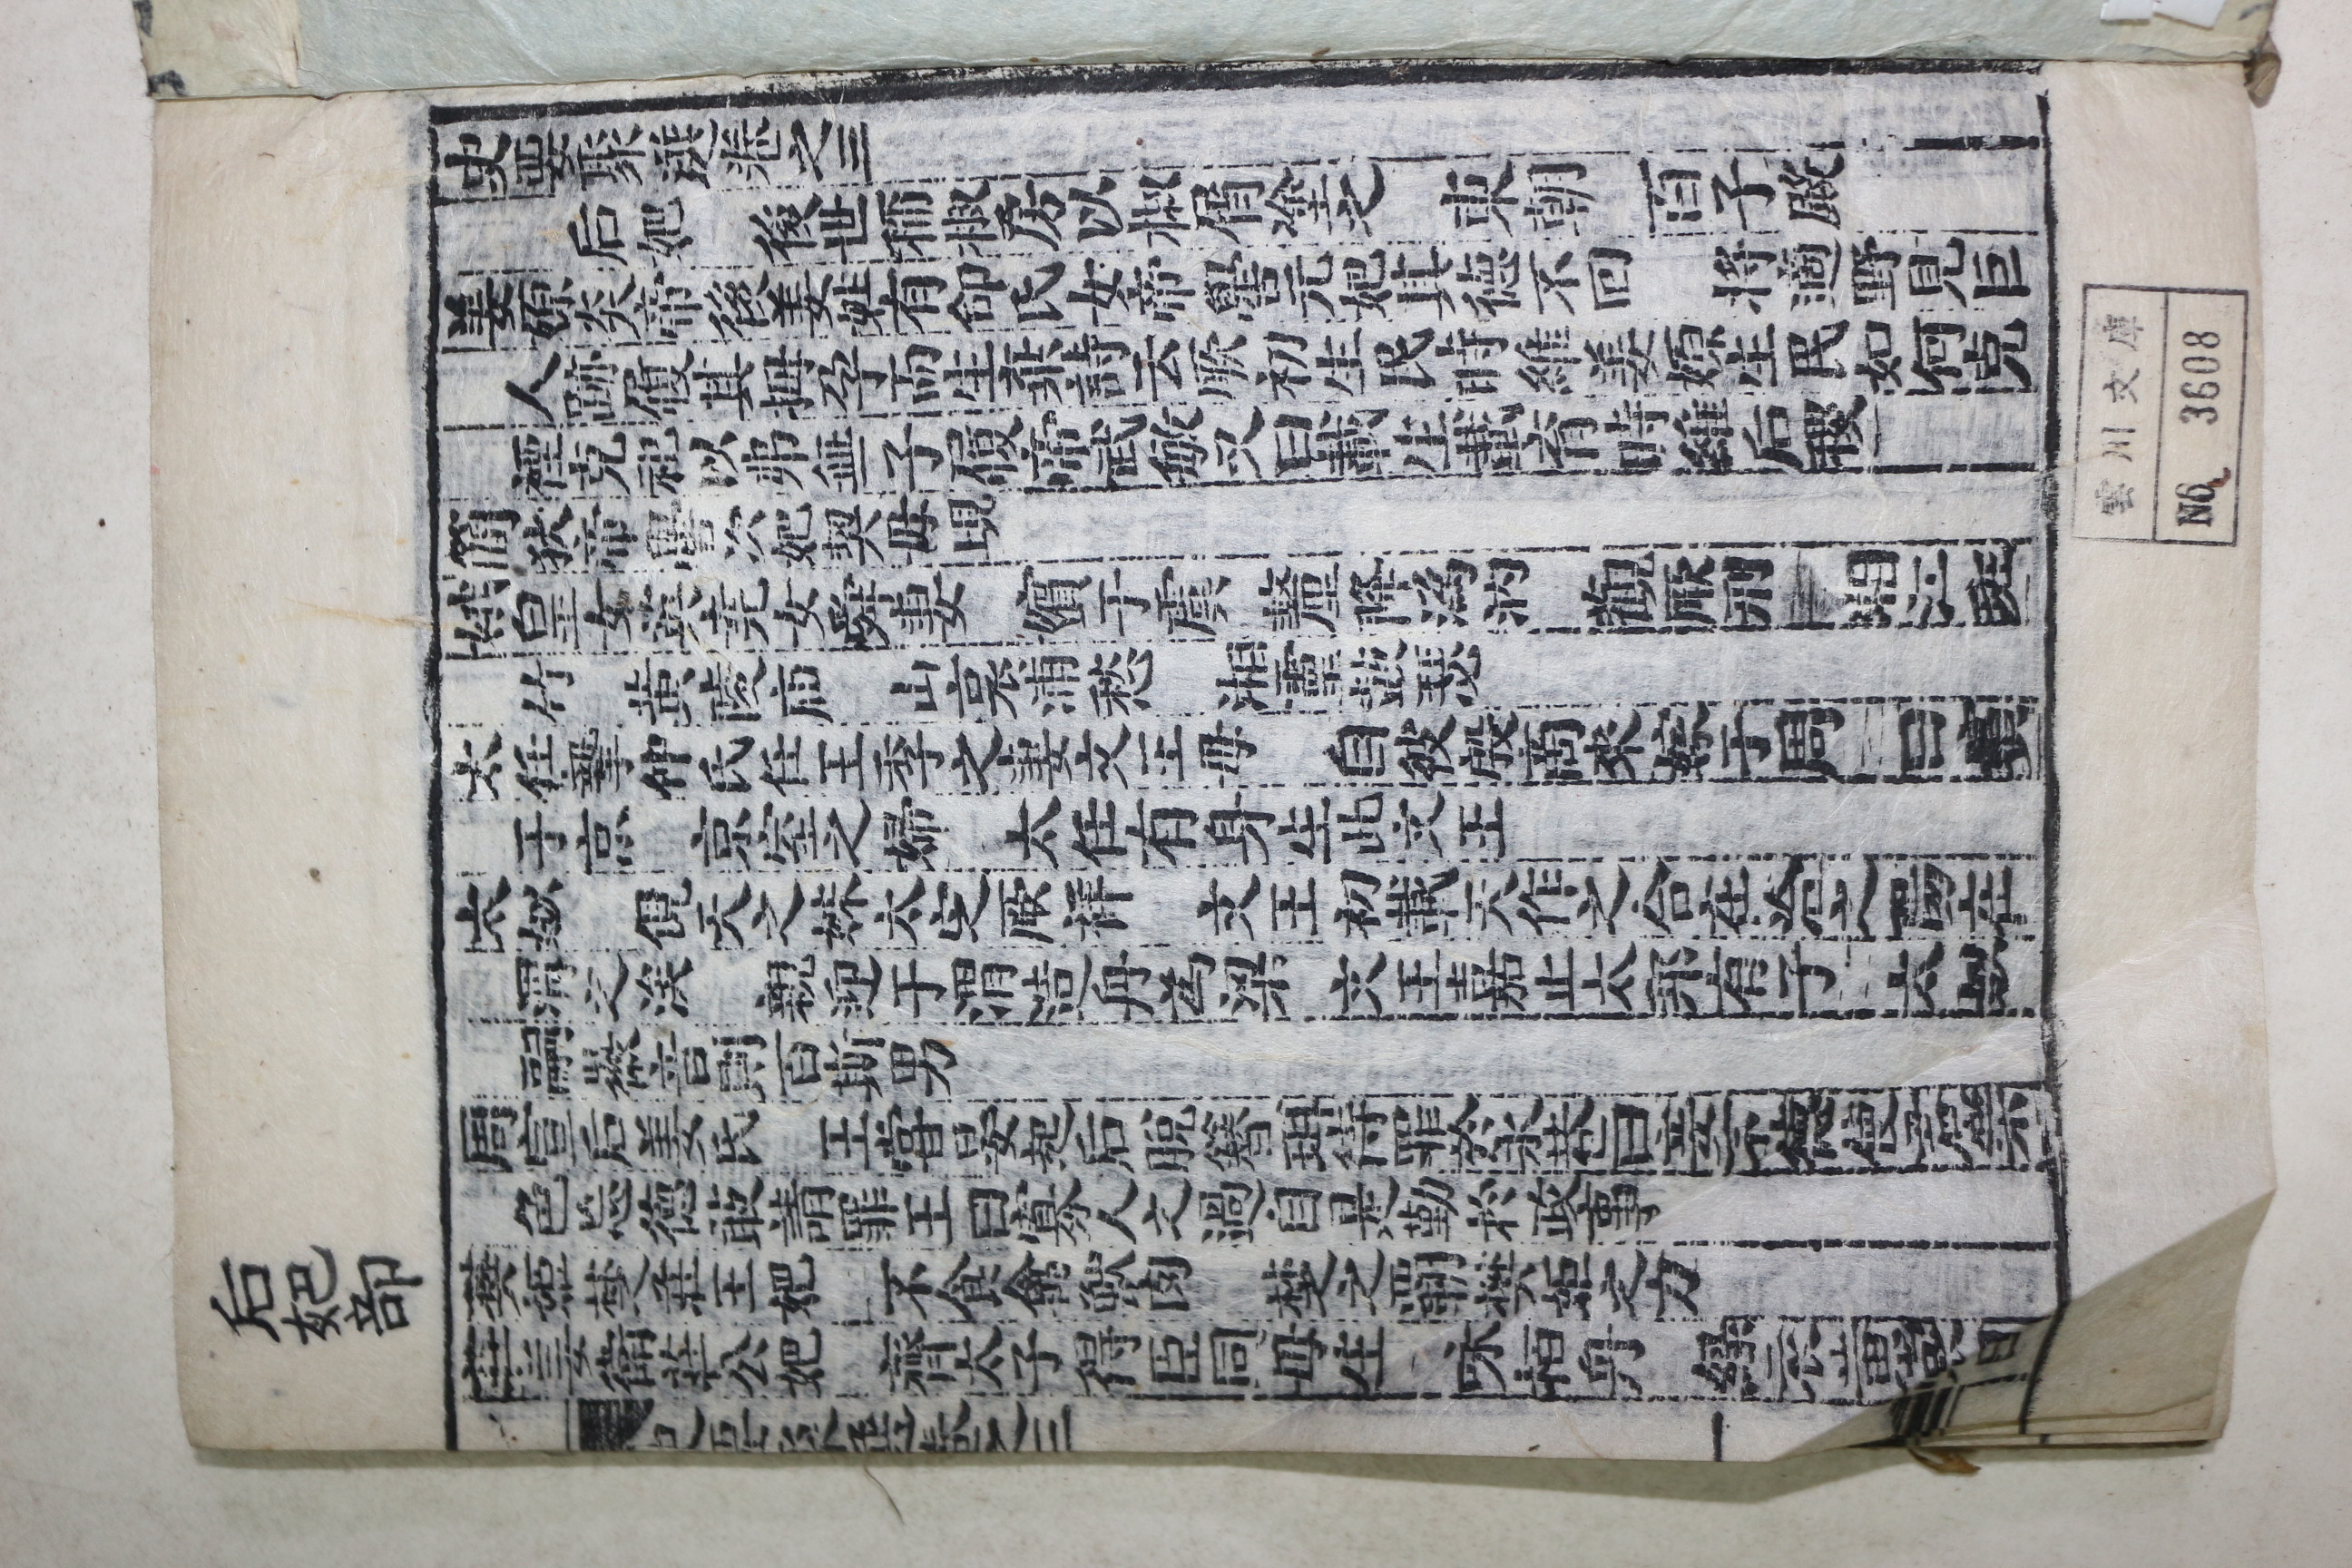 后妃部
史要聚選卷之三
后妃 後世稱椒房以椒屑塗之 東朝 百子殿
姜嫄炎帝後姜姓有邰氏女帝嚳元妃其德不回 將適野見巨
人跡履其拇孕而生棄詩云厥初生民時維姜嫄生民如何克
禋克祀以弗無子履帝武敏又曰載生載育時維后稷
簡狄帝嚳次妃契母見
娥皇女英堯女舜妻 嬪于虞 釐降溈汭 觀厥刑 湘江班
竹 黃陵庙 山哀浦愁 湘靈鼓瑟
太任摯仲氏任王季之妻文王母 自彼殷商來嫁于周 曰嬪
于京 京室之婦 太任有身生此文王
太姒 俔天之妹太定厥祥 文王初載天作之合在洽之陽在
渭之涘 親迎于渭造舟為梁 文王嘉止太邦有子 太姒
嗣徽音則百斯男
周宣后姜氏 王嘗晏起后脫簪珥待罪於永巷曰妾不德使君樂
色忘德敢請罪王曰寡人之過自是勤於政事
樊姬楚莊王妃 不食禽獸肉 楚之覇樊姬之方
莊姜衛莊公妃 齊太子得臣同母生 咏栢舟 綠衣
史要聚選卷之三
一
雲川文庫
No. 3608